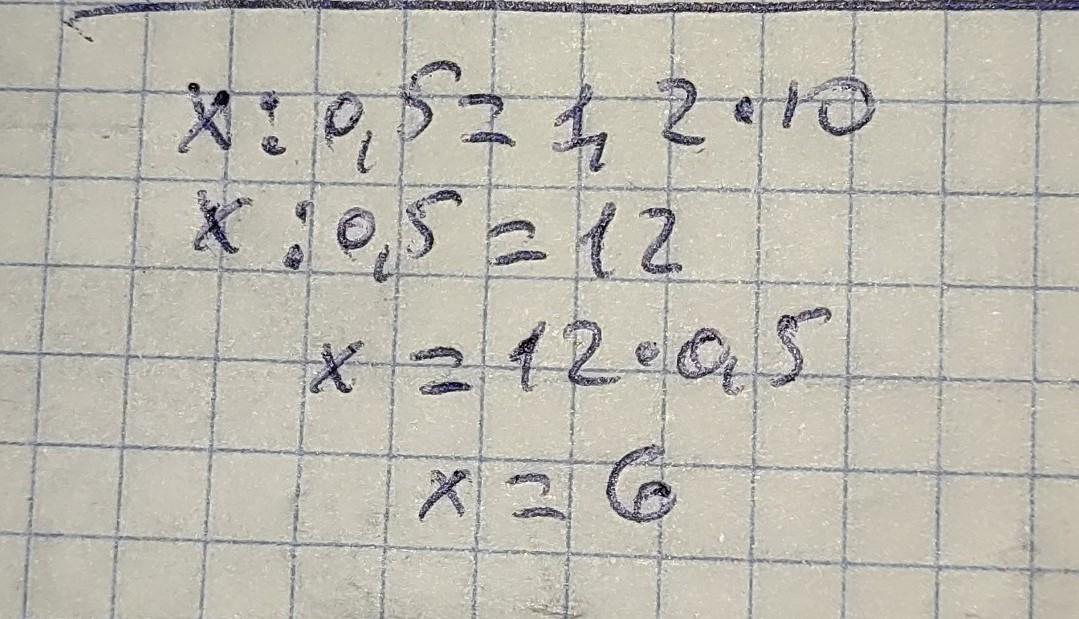 x : 0,5 = 1,2 · 10
x : 0,5 = 12
x = 12 · 0,5
x = 6